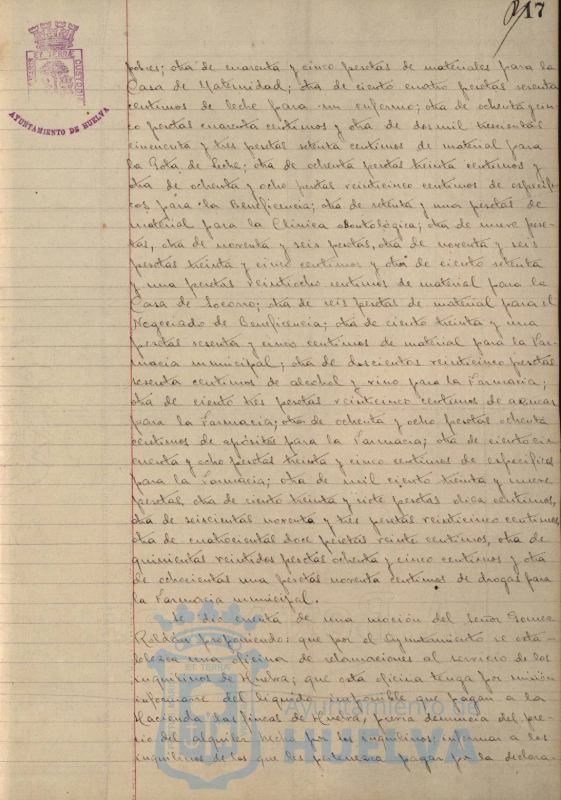 17
AYUNTAMIENTO DE HUELVA
pobres; otra de cuarenta y cinco pesetas de materiales para la
Casa de Maternidad; otra de ciento cuatro pesetas sesenta
centimos de leche para un enfermo; otra de ochenta y cin-
co pesetas cuarenta centimos y otra de dos mil trescientas
cincuenta y tres pesetas setenta centimos de material para
la Gota de Leche; otra de ochenta pesetas treinta centimos y
otra de ochenta y ocho pesetas veinticinco centimos de especifi-
cos para la Beneficencia; otra de setenta y una pesetas de
material para la Clinica odontológica; otra de nueve pese-
tas, otra de noventa y seis pesetas, otra de noventa y seis
pesetas treinta y cinco centimos y otra de ciento setenta
y una pesetas veintiocho centimos de material para la
Casa de Socorro; otra de seis pesetas de material para el
Negociado de Beneficencia; otra de ciento treinta y una
pesetas sesenta y cinco centimos de material para la Far-
macia municipal; otra de doscientas veinticinco pesetas
sesenta centimos de alcohol y vino para la Farmacia;
otra de ciento tres pesetas veinticinco centimos de azucar
para la Farmacia; otra de ochenta y ocho pesetas ochenta
centimos de apósitos para la Farmacia; otra de ciento cin-
cuenta y ocho pesetas treinta y cinco centimos de especificos
para la Farmacia; otra de mil ciento treinta y nueve
pesetas, otra de ciento treinta y siete pesetas diez centimos,
otra de seiscientas noventa y tres pesetas veinticinco centimos,
otra de cuatrocientas doce pesetas veinte centimos, otra de
quinientas veintidos pesetas ochenta y cinco centimos y otra
de ochocientas una pesetas noventa centimos de drogas para
la Farmacia municipal.
Se dio cuenta de una moción del Señor Gomez
Roldán proponiendo: que por el Ayuntamiento se esta-
blezca una oficina de reclamaciones al servicio de los
inquilinos de Huelva; que esta oficina tenga por misión
informarse del liquido imponible que pagan a la
Hacienda las fincas de Huelva, previa denuncia del pre-
cio del alquiler hecha por los inquilinos; informar a los
inquilinos de los que les pertenezca pagar por la declara-
Ayuntamiento de
HUELVA